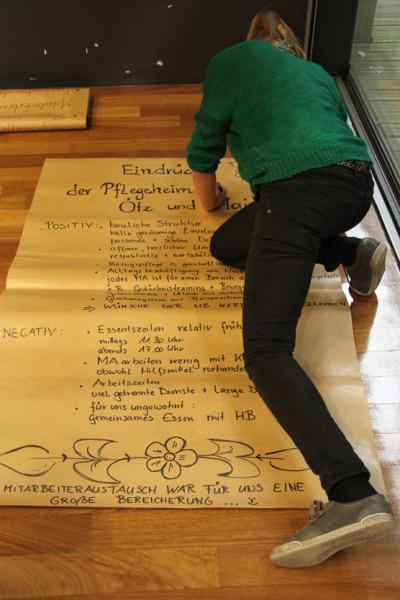 Eindrü
der Pflegeheim
Ötz und
POSITIV: bauliche Struktur
helle geräumige Einzelzi
passende + schöne De
offener, herzlicher Um
respektvolle + wertsch
Bezugspflege = ganzheitl
Alltagsbeschäftigung am
jeder MA ist für einen Bereich
z.B. Gedächnistraining + Beweg
⇒ WÜNSCHE DER HB WERD
NEGATIV: Essenszeiten relativ früh
mittags 11.30 Uhr
abends 17.00 Uhr
MA arbeiten wenig mit K
obwohl Hilfsmittel vorhande
Arbeitszeiten
viel getrennte Dienste + lange D
für uns ungewohnt:
gemeinsames Essen mit HB
MITARBEITERAUSTAUSCH WAR FÜR UNS EINE
GROßE BEREICHERUNG ...